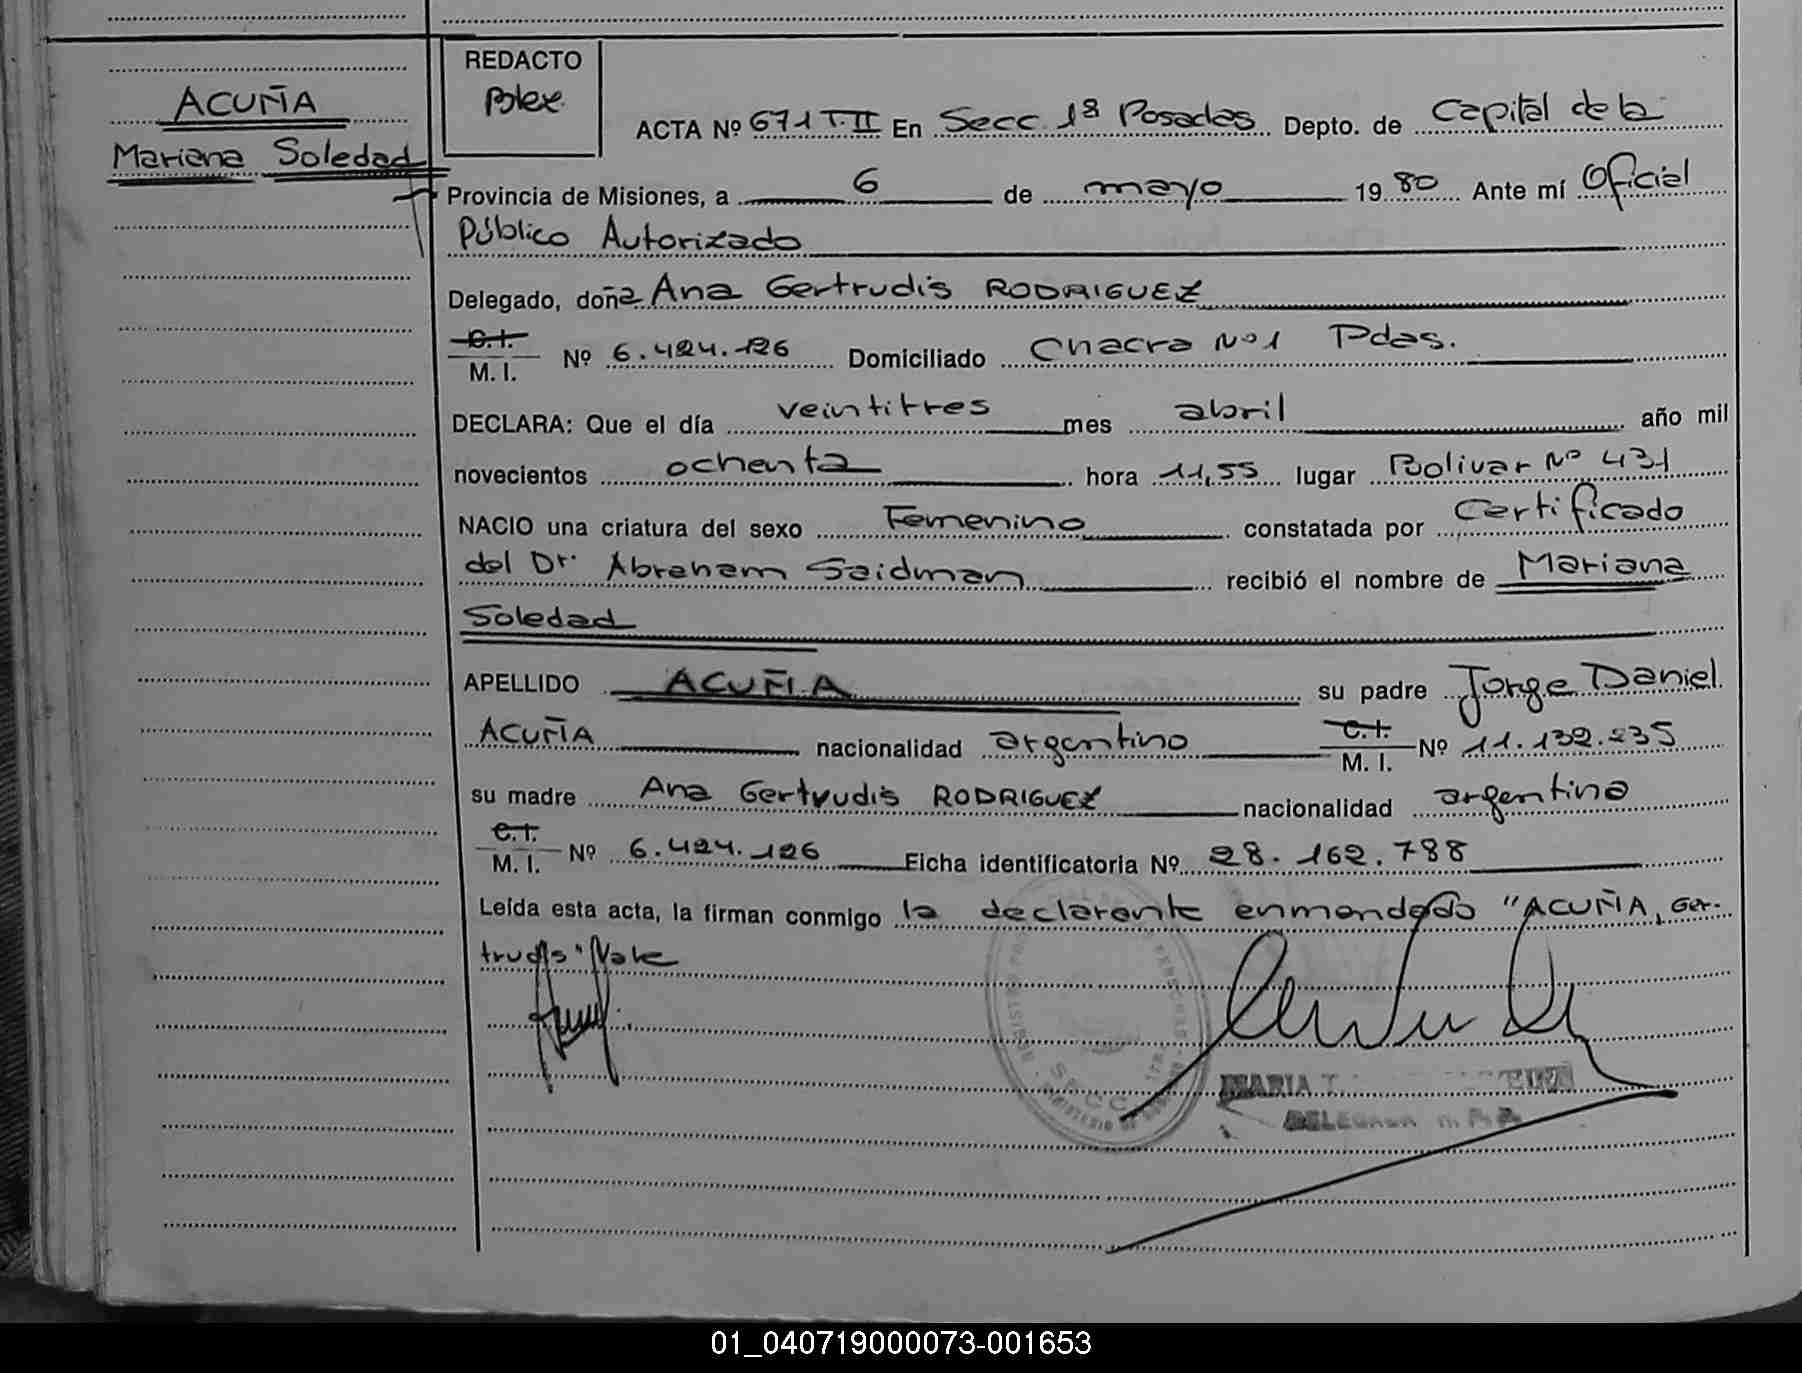 ACUÑA
Mariana Soledad
REDACTO
ACTA Nº 671 T. II En Secc. 1ª Posadas Depto. de Capital de la
Provincia de Misiones, a 6 de mayo 1980 Ante mí Oficial
Público Autorizado
Delegado, doña Ana Gertrudis RODRIGUEZ
C.I.
M. I. Nº 6.424.126 Domiciliado Chacra Nº 1 Pdas.
DECLARA: Que el día veintitres mes abril año mil
novecientos ochenta hora 11,55 lugar Bolivar Nº 431
NACIO una criatura del sexo Femenino constatada por Certificado
del Dr. Abraham Saidman recibió el nombre de Mariana
Soledad
APELLIDO ACUÑA su padre Jorge Daniel
ACUÑA nacionalidad argentino C.I.
M. I. Nº 11.132.235
su madre Ana Gertrudis RODRIGUEZ nacionalidad argentina
C.I.
M. I. Nº 6.424.126 Ficha identificatoria Nº 28.162.788
Leída esta acta, la firman conmigo la declarante enmendado "ACUÑA, Ger-
trudis" Vale
SECC. 1ra
MARIA T.
DELEGADA
01_040719000073-001653